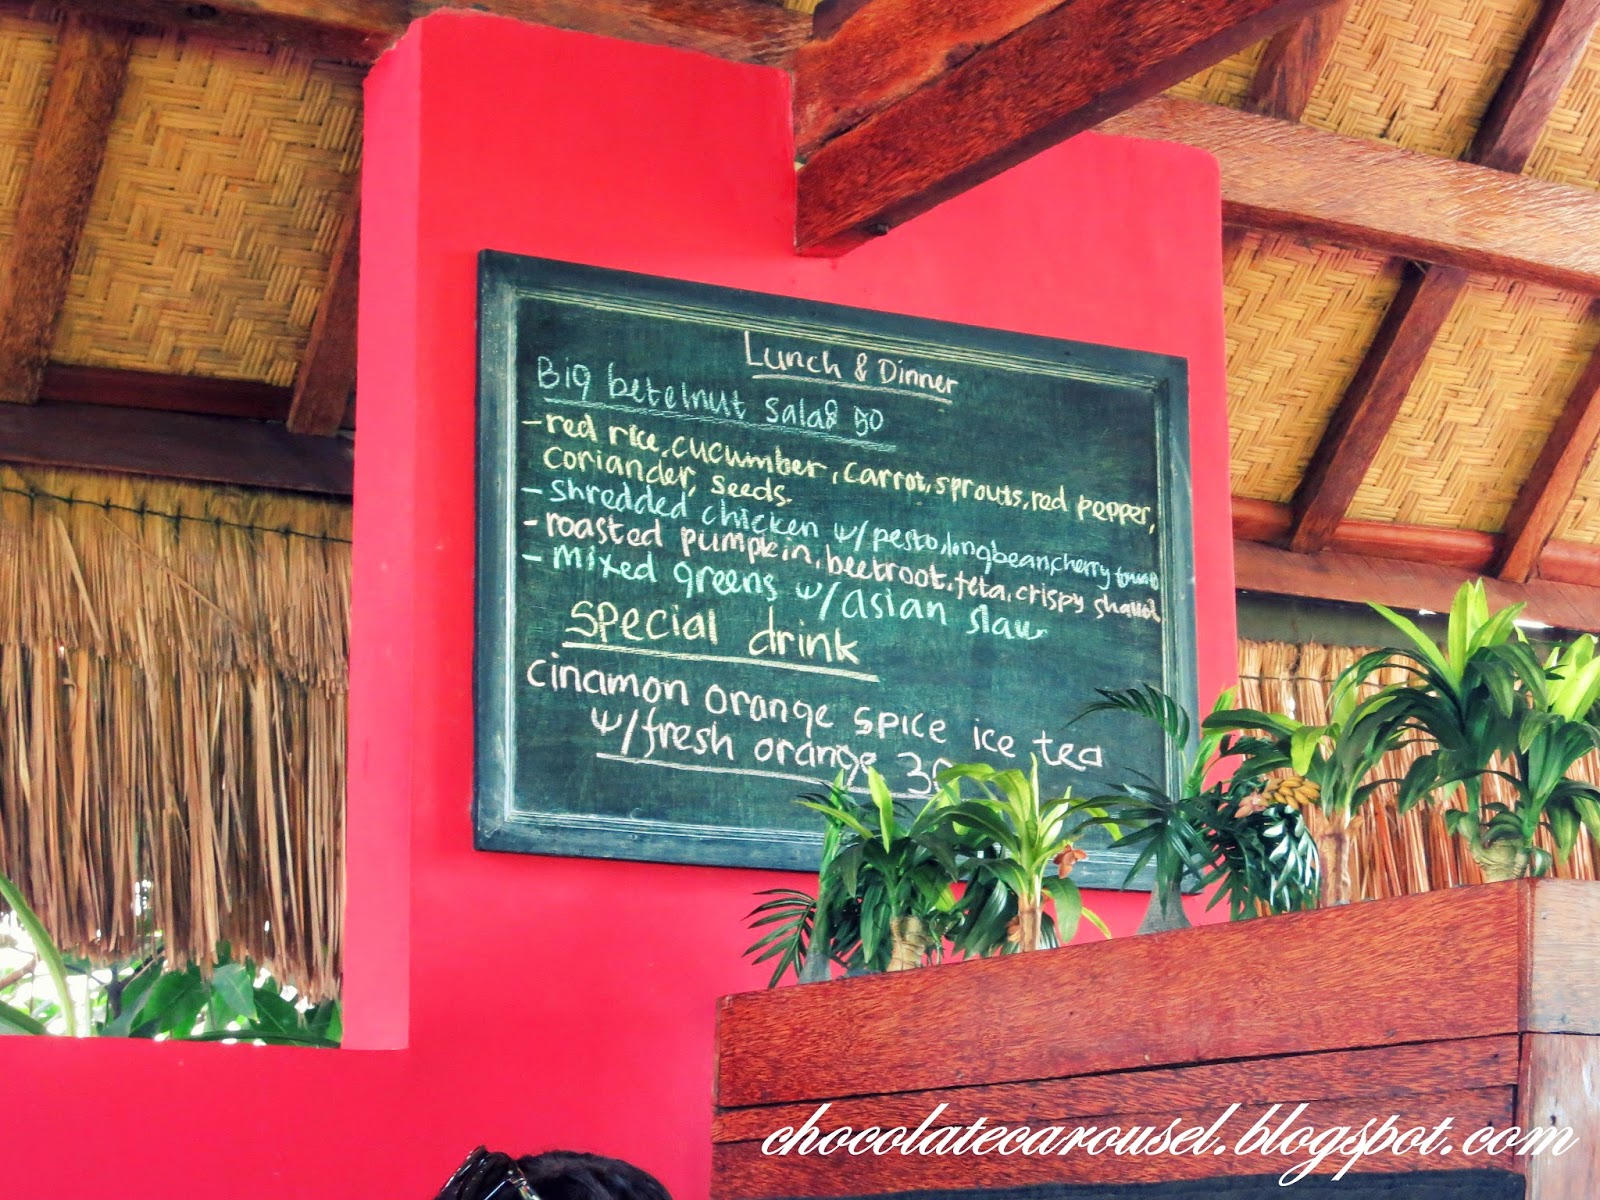 Lunch & Dinner
Big betelnut salad 50
- red rice, cucumber, carrot, sprouts, red pepper,
coriander, seeds.
- shredded chicken w/ pesto, longbean, cherry tomato
- roasted pumpkin, beetroot, feta, crispy shallot
- mixed greens w/ asian slaw
special drink
cinamon orange spice ice tea
w/ fresh orange 30
chocolatecarousel.blogspot.com